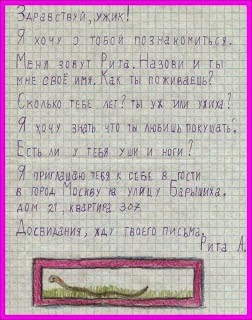 Здравствуй, ужик!
Я хочу с тобой познакомиться.
Меня зовут Рита. Назови и ты
мне своё имя. Как ты поживаешь?
Сколько тебе лет? Ты уж или ужиха?
Я хочу знать что ты любишь покушать.
Есть ли у тебя уши и ноги?
Я приглашаю тебя к себе в гости
в город Москву на улицу Барышиха.
дом 21, квартира 307.
Досвидания, жду твоего письма.
Рита А.